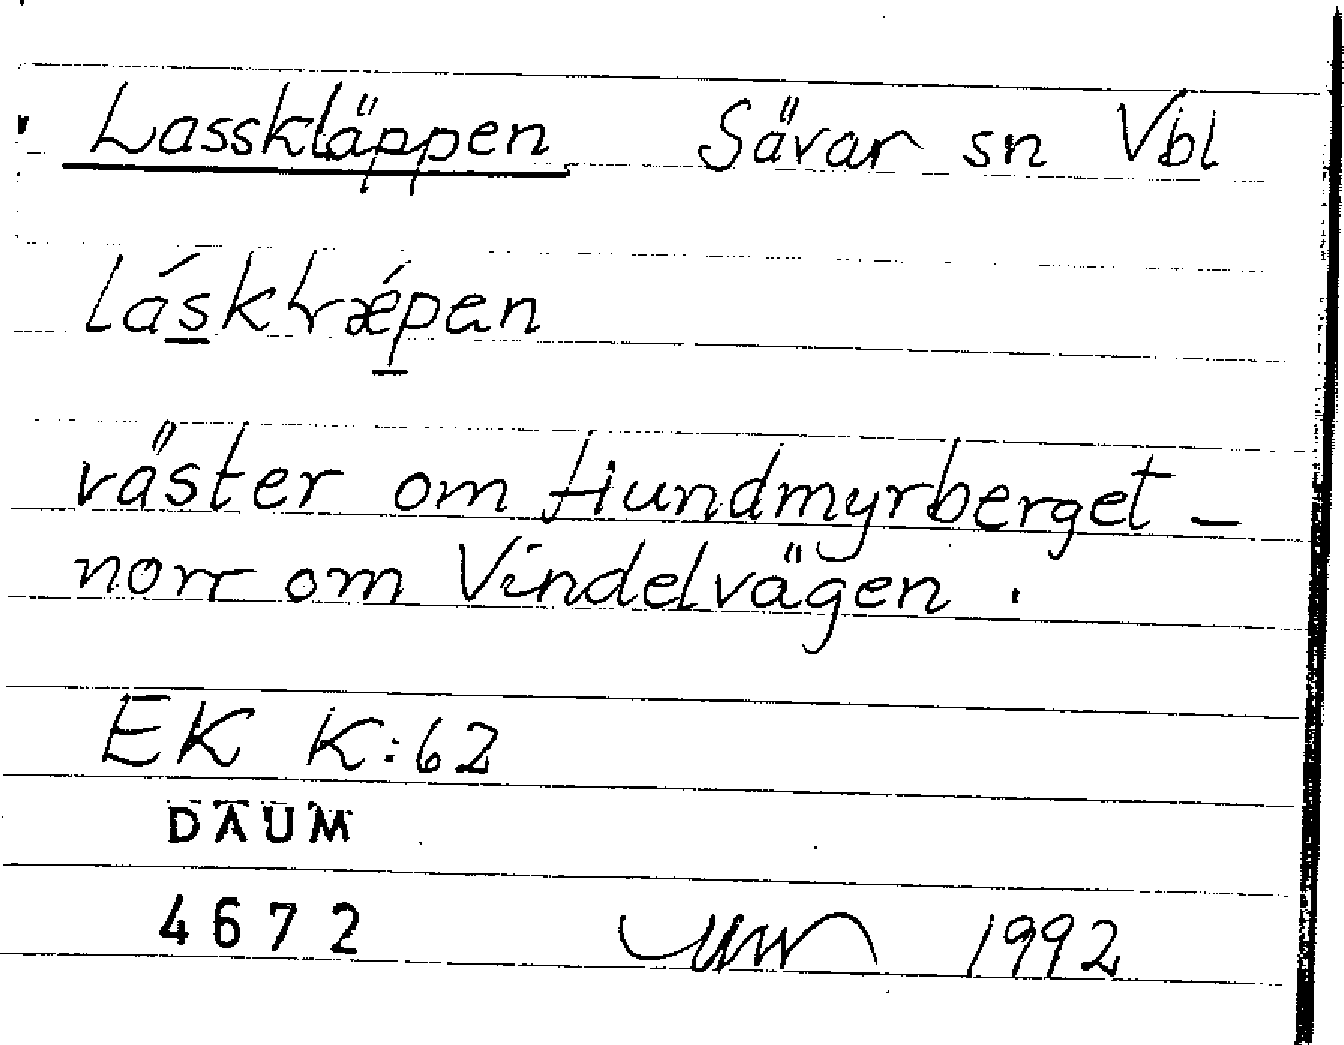 Lasskläppen Sävar sn Vbl
väster om Hundmyrberget –
norr om Vindelvägen.
EK K:62
DAUM
4672 1992